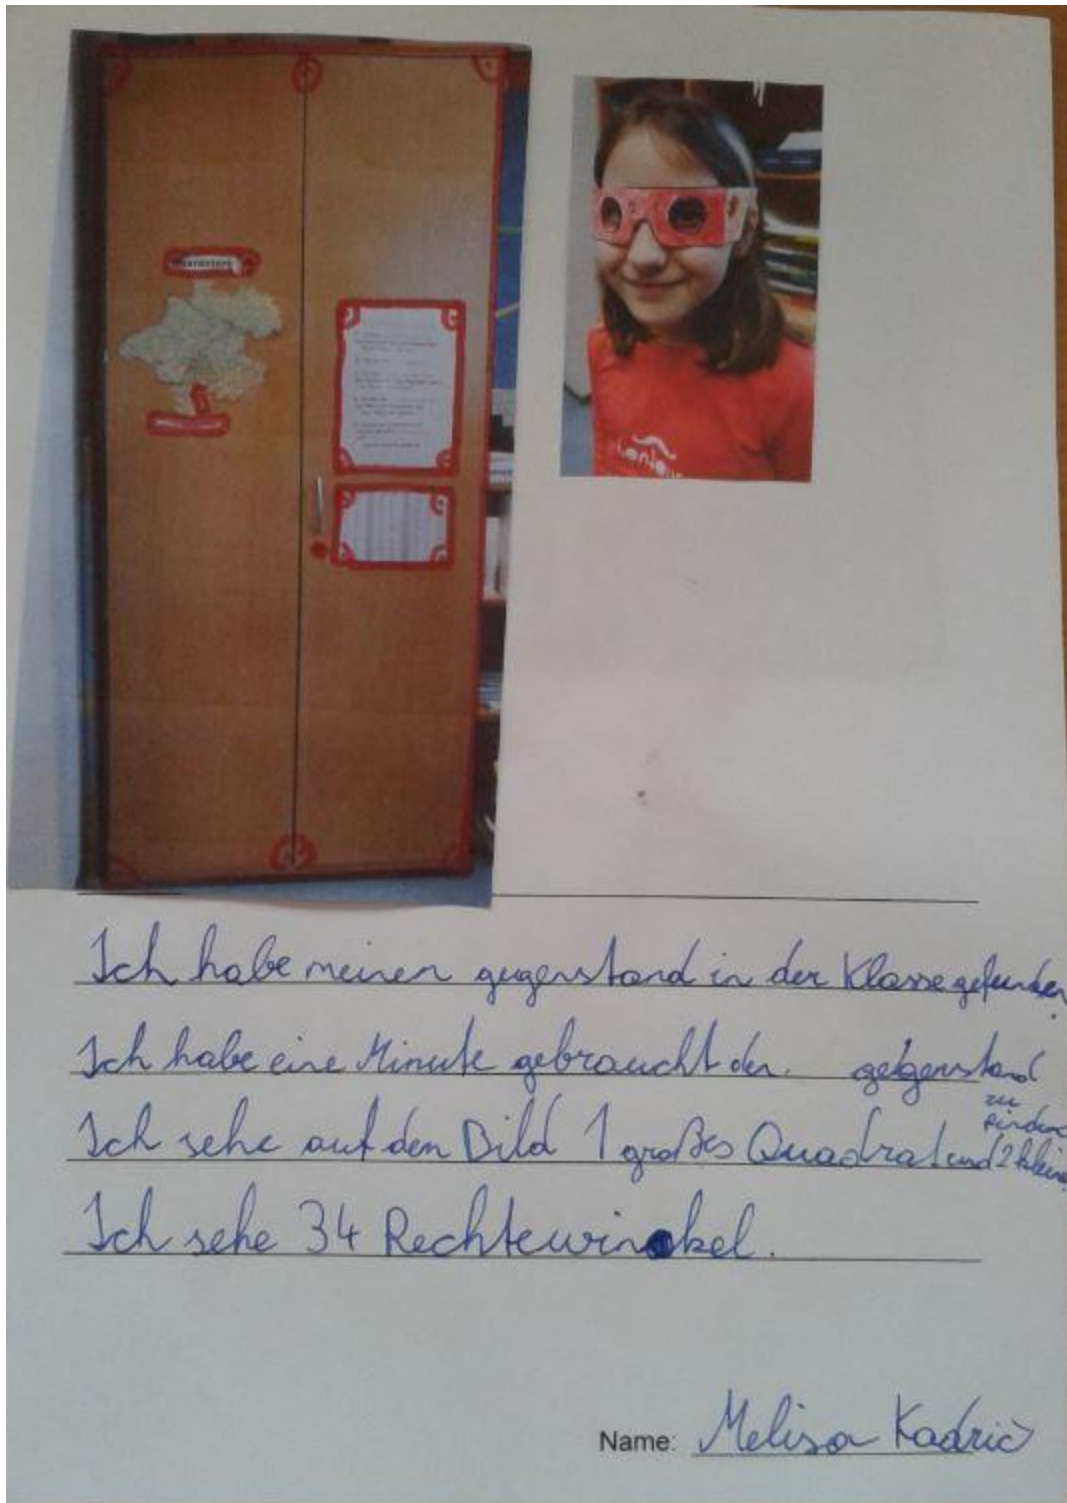 Ich habe meinen gegenstand in der Klasse gefunden.
Ich habe eine Minute gebraucht den gegenstand
zu finden
Ich sehe auf den Bild 1 großes Quadrat und 2 kleine
Ich sehe 34 Rechtewinkel.
Name: Melisa Kadrić